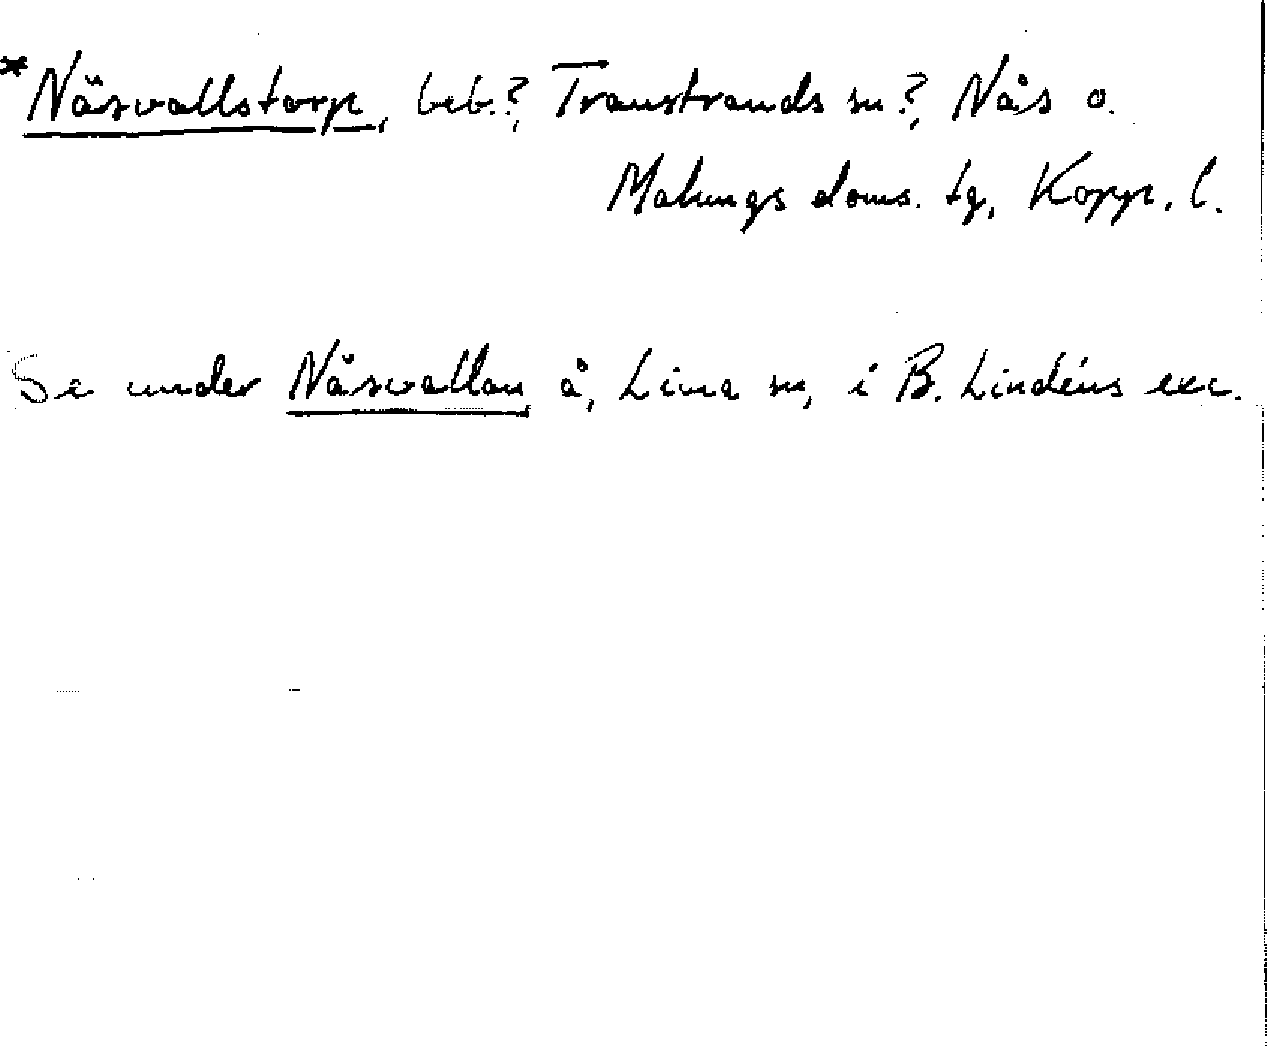 *Näsvallstorp, beb.?, Transtrands sn?, Nås o.
Malungs doms. tg, Kopp. l.
Se under Näsvallan å, Lima sn, i B. Lindéns exc.